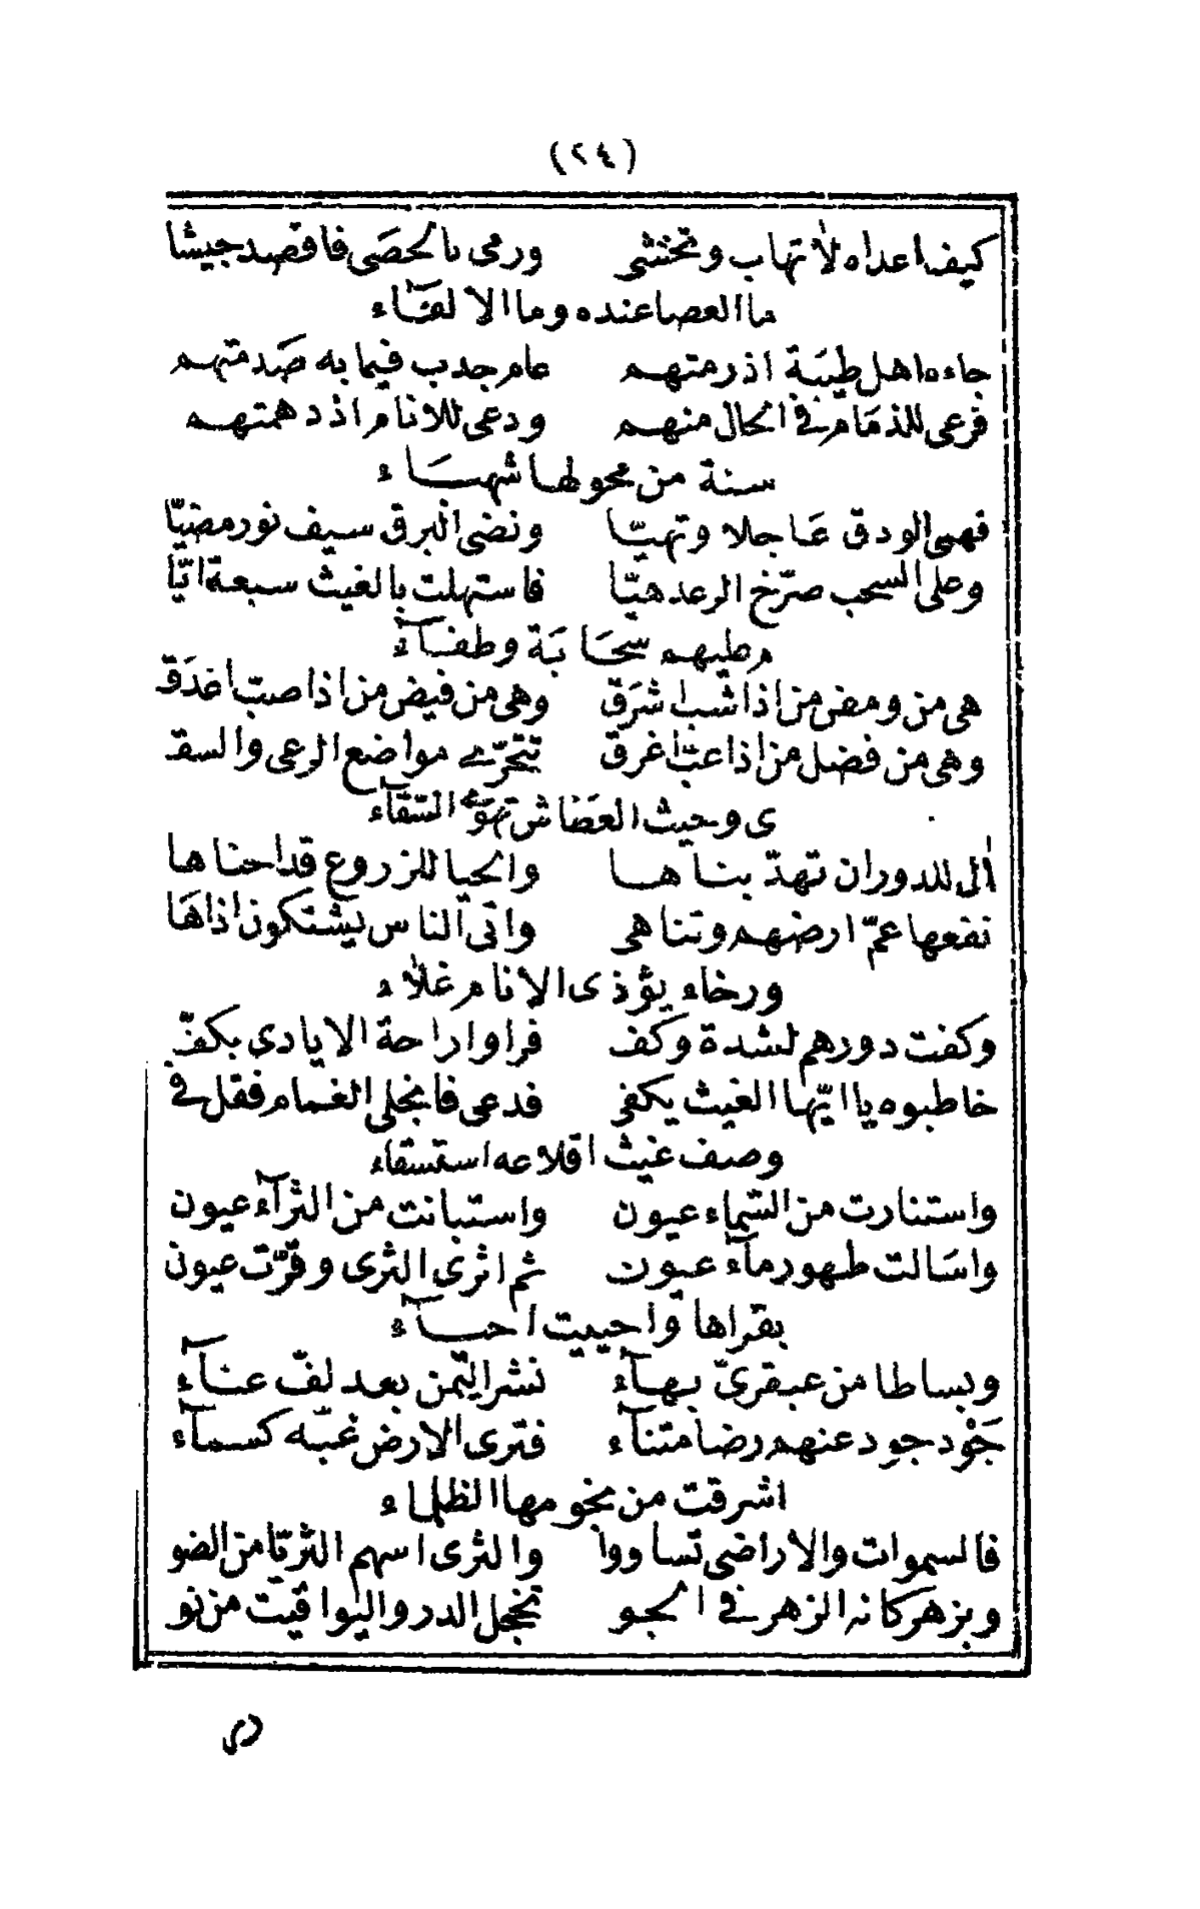 (٢٤)
كيف اعداه لاتهاب وتختشى ورمى بالحصى فاقصد جيشا
ما العصا عنده وما الالقاء
جاءه اهل طيبة اذ رمتهم عام جدب فيما به صدمتهم
فرعى للذمام فى الحال منهم ودعى للانام اذ دهمتهم
سنة من محولها شهباء
فهمى الودق عاجلا وتهيّا ونضى البرق سيف نور مضيّا
وعلى السحب صرّخ الرعد هيّا فاستهلت بالغيث سبعة ايّا
م عليهم سحابة وطفآء
هى من ومض من اذا شب اشرق وهى من فيض من اذا صبّ اغدق
وهى من فضل من اذا عبّ اغرق تتحرّى مواضع الرعى والسقـ
ى وحيث العطاش توهى السّقآء
ال للدوران تهدّ بناها والحيا للزروع قد احناها
نفعها عمّ ارضهم وتناهى واتى الناس يشتكون اذاها
ورخاء يؤذى الانام غلاء
وكفت دورهم لشدة وكف فراوا راحة الايادى بكفّ
خاطبوه يا ايّها الغيث يكفى فدعى فانجلى الغمام فقل فى
وصف غيث اقلاعه استسقاء
واستنارت من السّماء عيون واستبانت من الثرآء عيون
واسالت طهور مآء عيون ثم اثرى الثرى وقرّت عيون
بقراها واحييت احيآء
وبساطا من عبقرىّ بهآء نشر اليّمن بعد لفّ عنآء
جَوْد جود عنهم رضا متنآء فترى الارض غبّه كسمآء
اشرقت من نجومها الظلماء
فالسموات والاراضى تساووا والثرى اسهم الثريّا من الضو
وبزهر كانه الزهر فى الجو تخجل الدر واليواقيت من نو
ر